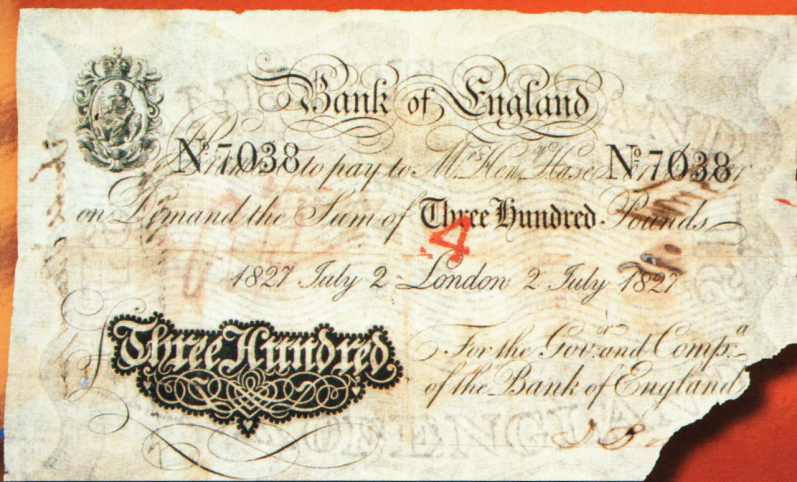 Bank of England
Nº 7038 to pay to Mʳ Henʸ Hase Nº 7038
on Demand the Sum of Three Hundred Pounds
4
1827 July 2 London 2 July 1827
Three Hundred
For the Govʳ and Compᵃ
of the Bank of England
OF ENGLA